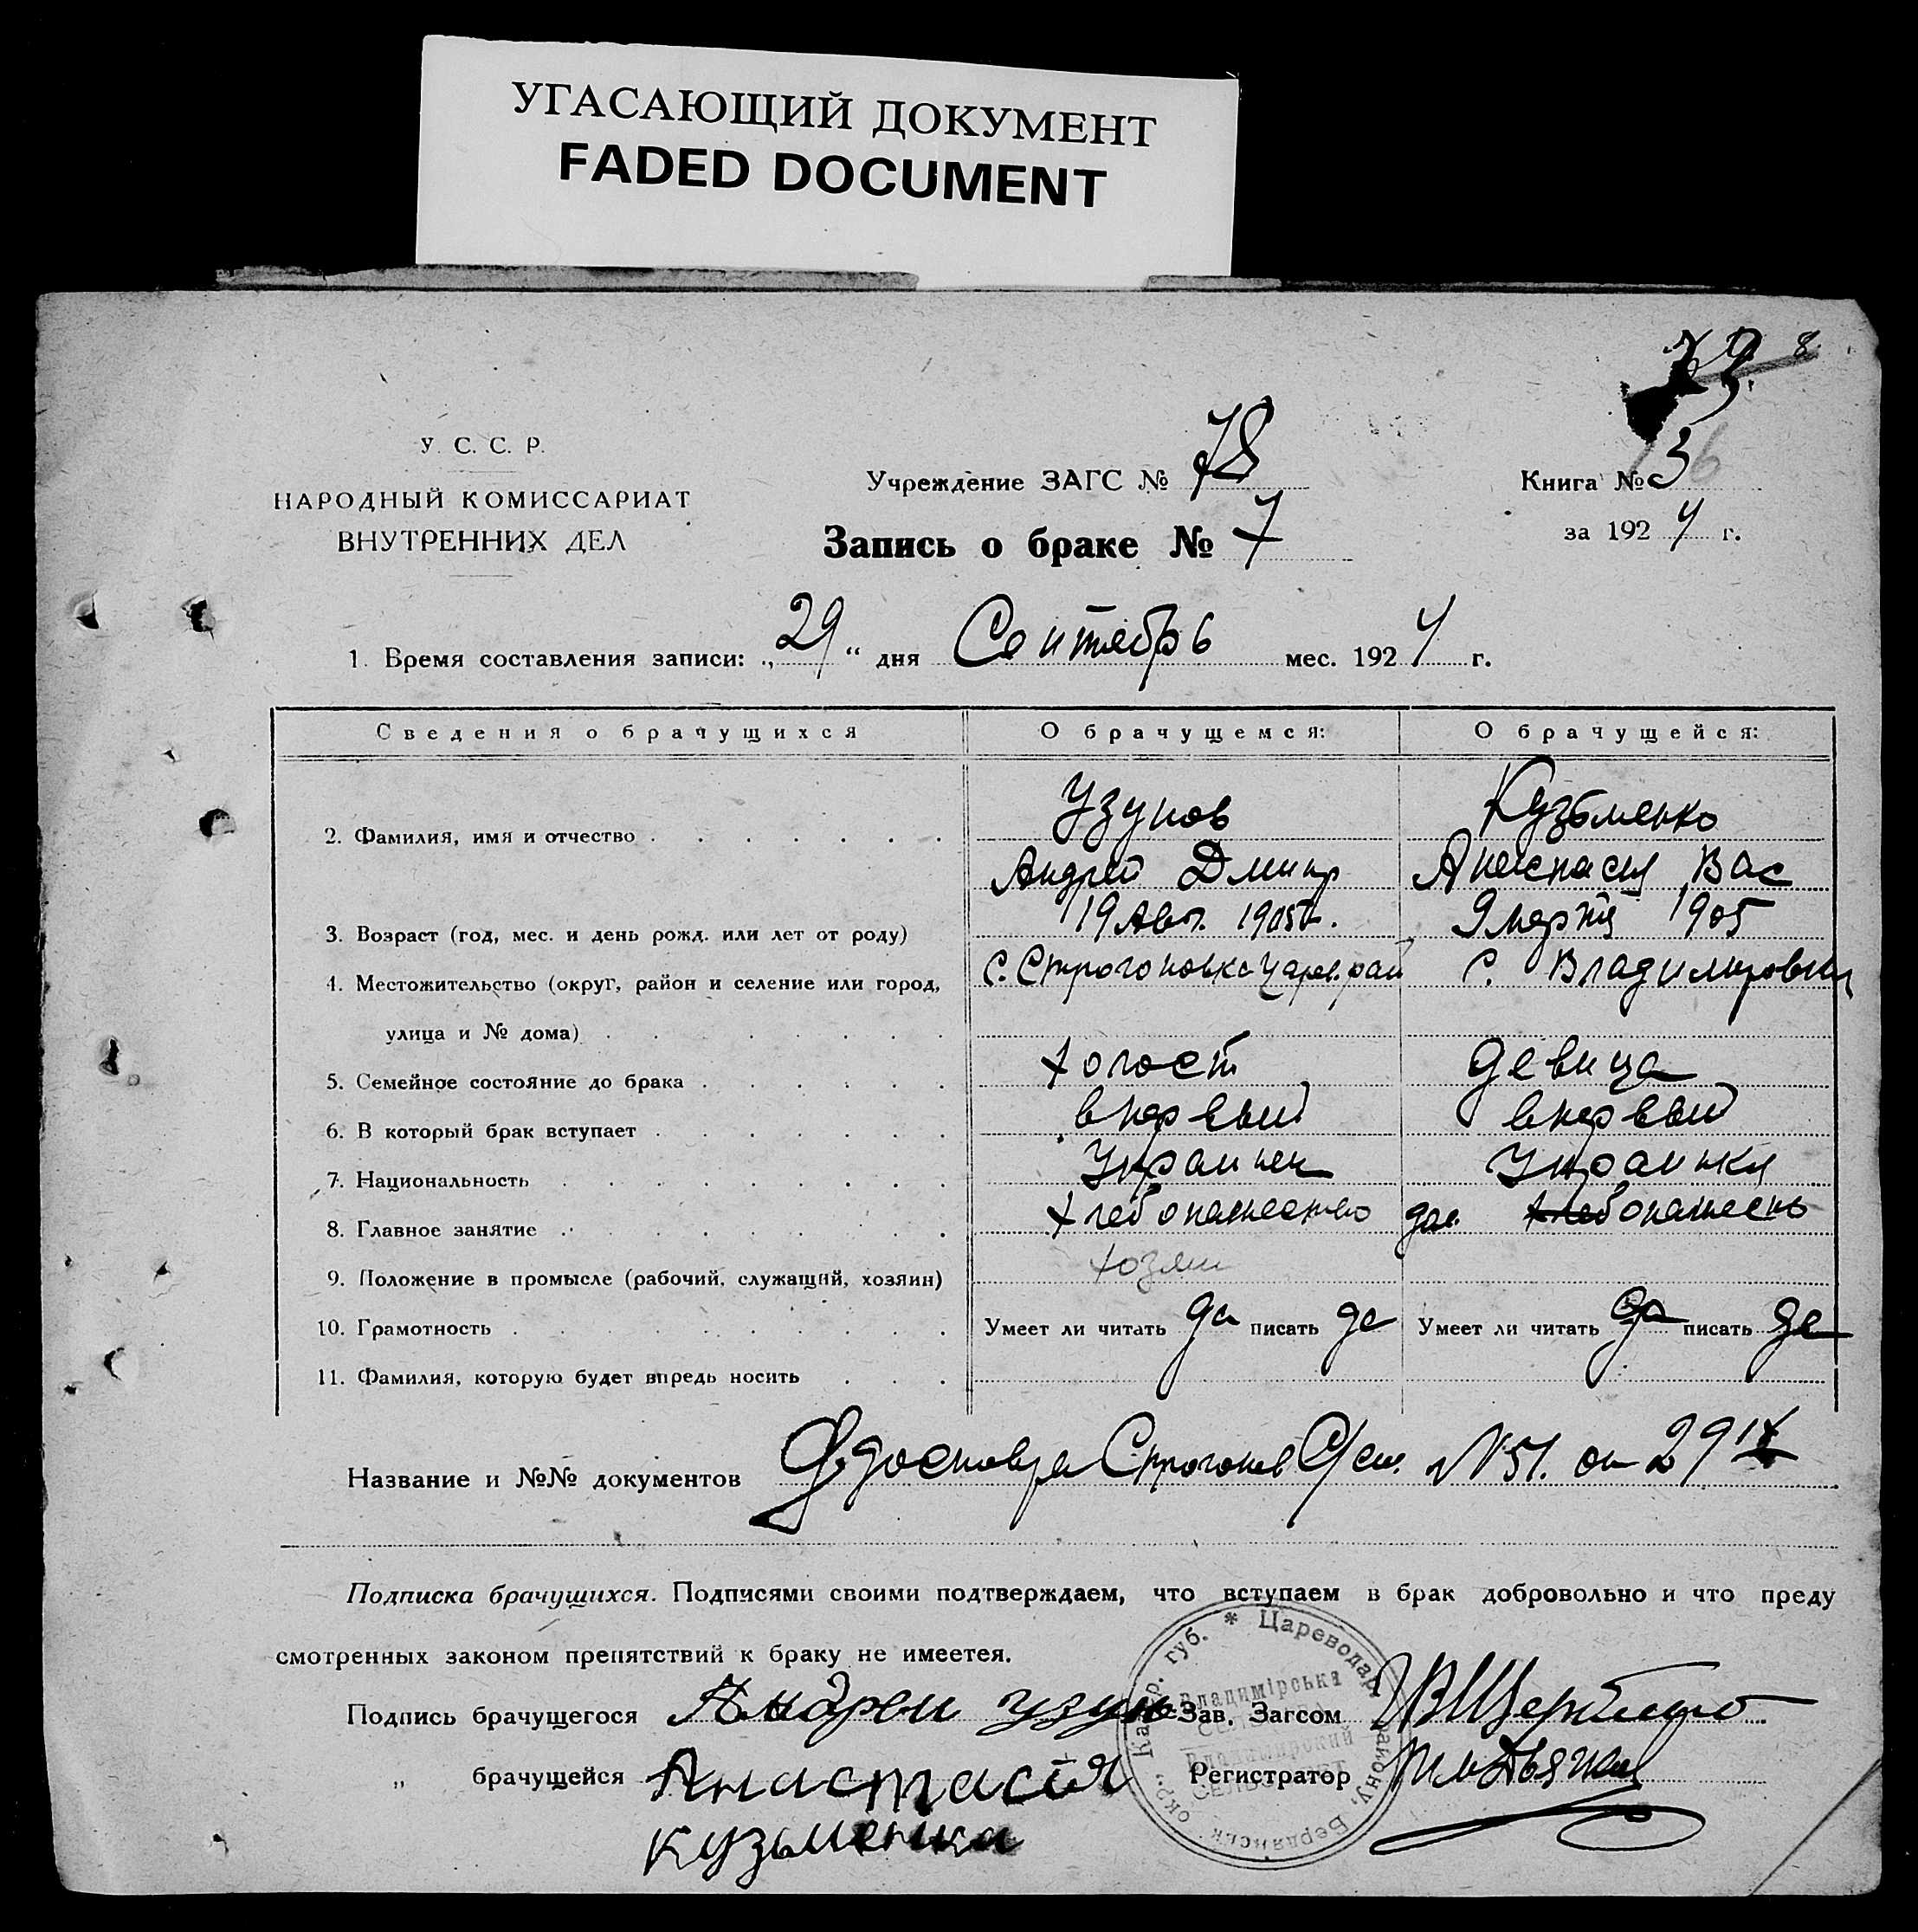 УГАСАЮЩИЙ ДОКУМЕНТ
FADED DOCUMENT
79. 8
У. С. С. Р.
НАРОДНЫЙ КОМИССАРИАТ
ВНУТРЕННИХ ДЕЛ
Учреждение ЗАГС № 78
Запись о браке № 7
Книга № 3 6
за 1924 г.
1. Время составления записи: „29“ дня Сентябрь мес. 1924 г.
Сведения о брачущихся О брачущемся: О брачущейся:
Узунов Кузьменко
2. Фамилия, имя и отчество
Андрей Дмитр Анастасия Вас
3. Возраст (год, мес. и день рожд. или лет от роду) 19 Авг. 1905 г. 9 марта 1905
4. Местожительство (округ, район и селение или город, с. Строгоновка Царев. рай с. Владимировки
улица и № дома)
5. Семейное состояние до брака холост девица
6. В который брак вступает первый первый
7. Национальность Украинец Украинка
8. Главное занятие хлебопашество дом. хлебопашесь
9. Положение в промысле (рабочий, служащий, хозяин) хозяин
10. Грамотность Умеет ли читать да писать да Умеет ли читать да писать да
11. Фамилия, которую будет впредь носить
Название и №№ документов Удостовер Строгонов С/сов. № 51. от 29 IX
Подписка брачущихся. Подписями своими подтверждаем, что вступаем в брак добровольно и что преду
смотренных законом препятствий к браку не имеетея.
Подпись брачущегося Андреи узун Зав. Загсом
„ брачущейся Анастасия Регистратор
кузьменка
Катер. губ. * Цареводар. району, Бердянськ. окр.
Владимірська
Владимирский
СЕЛЬСОВЕТ